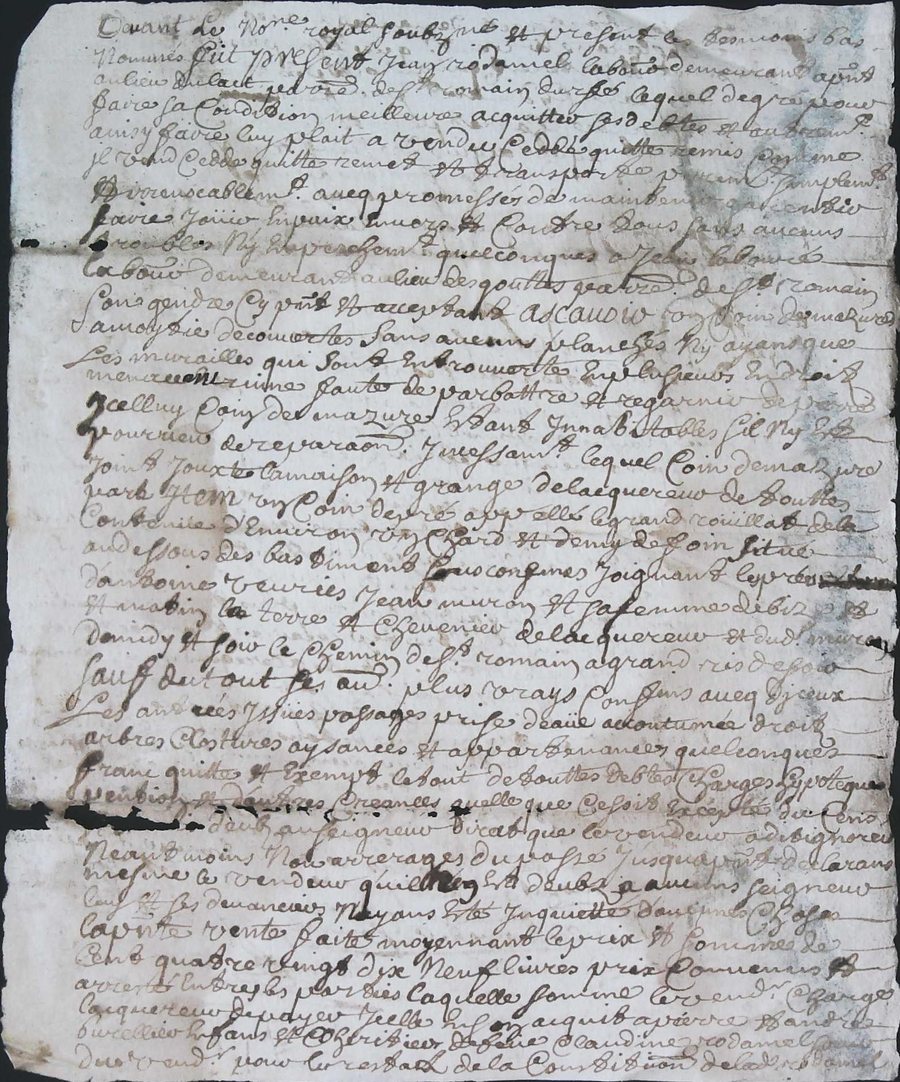 Devant Le No.re royal soubz.né et present les tesmoins bas
Nommés fut present Jean rodamel labour demeurant a p.nt
au lieu du lait parr.e de s.t romain durfé lequel de gre pour
faire sa Condition meilleure acquitter ses debtes et autrem.t
ainsy faire luy plait a vendu Cedde quitte remis Comme
Jl vend Cedde quitte remet et transporte purem.t simplem.t
et irrevocablem.t avecq promesses de maintenir garentir
faire Jouir En paix Envers et Contre tous sans aucuns
troubles Ny Empeschem.t quelconques a Jean laboure
labour demeurant au lieu des gouttes parr.e de s.t romain
son gendre Cy p.nt et acceptant ascavoir un Coin de mazure
sa moytie decouvertes sans aucuns planches Ny ayans que
Les murailles qui sont Entrouverte En plusieurs Endroit
menacent ruine faute de rarbattre et regarnir de pierre
Jcelluy Coin de mazure Estant Jnnabitables sil Ny Est
pourvieu de reparaon Jncessam.t lequel Coin de mazure
Joint Jouxte la maison et grange de lacquereur de touttes
part Jtem un Coin de pré appellé le grand rouillat de la
Contenue d'Environ un Chard et demy de foin situé
au dessous des bastiment sus confines Joignant le pré
d'antoine veuries Jean muron et sa femme de biz et
et matin la terre et Chevenier de lacquereur et dud. muron
de midy et soir le Chemin de s.t romain a grand ris de soir
sauf du tout ses au.t plus vrays Confins avecq Jceux
Les antrées Jssues passages prise d'eaue accoutumée droit
arbres Clostures aysances et appartenances quelconques
franc quitte et Exempt le tout de touttes debtes Charges hypoteque
pention et d'autres Creances quelle que Ce soit Excepté du Cens
deub au seigneur dirat que le vendeur a dit ignorer
Neantmoins Non arrerages du passé Jusqua p.nt declarans
mesme le vendeur quil Ney Est deub a aucuns seigneur
leur et ses devanciers Nayans Esté Jnquietté d'aucunes Choses
la p.nte vente faite moyennant le prix et somme de
Cent quatre vingt dix Neuf livres prix Convenus et
arrestés Entre les parties laquelle somme le vend.r Charge
lacquereur de payer Jcelle En son acquit a pierre et andré
durellier Enfans et Cohritiers de feue Claudine rodamel soeur
du vend.r pour le restat de la Constitution de lad. rodamel